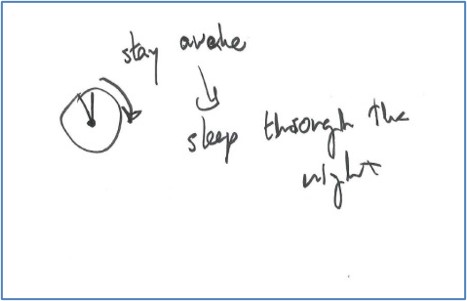 stay awake
sleep through the
night